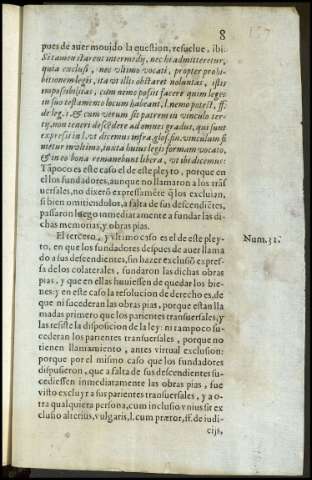 8
pues de auer mouido la question, resuelue, ibi:
Si tamen starent intermedij, nec hi admitteretur,
quia exclusi, nec vltimo vocati, propter prohi-
bitionem legis, ita vt illis obstaret noluntas, istis
impossibilitas, cum nemo possit facere quin leges
in suo testamento locum habeant, l. nemo potest, ff.
de leg. 1. & cum verum sit patrem in vinculo ter-
tij, non teneri descẽdere ad omnes gradus, qui sunt
expressi in l. vt dicemus infra glos. fin. vinculum si
metur in vltimo, iuxta huius legis formam vocato,
& in eo bona remanebunt libera, vt ibi dicemus:
Tãpoco es este caso el de este pleyto, porque en
el los fundadores, aunque no llamaron a los trãs
uersales, no dixerõ expressamẽte q̃ los excluian,
si bien omitiendolos, a falta de sus descendiẽtes,
passaron luego inmediatamente a fundar las di-
chas memorias, y obras pias.
El tercero, y vltimo caso es el de este pley-
to, en que los fundadores despues de auer llama
do a sus descendientes, sin hazer exclusiõ expres-
sa de los colaterales, fundaron las dichas obras
pias, y que en ellas huuiessen de quedar los bie-
nes: y en este caso la resolucion de derecho es, de
que ni sucederan las obras pias, porque estan lla
madas primero que los parientes transuersales, y
las resiste la disposicion de la ley: ni tampoco su-
cederan los parientes transuersales, porque no
tienen llamamiento, antes virtual exclusion:
porque por el mismo caso que los fundadores
dispusieron, que a falta de sus descendientes su-
cediessen inmediatamente las obras pias, fue
visto excluyr a sus parientes transuersales, y a o-
tra qualquiera persona, cum inclusio vnius sit ex
clusio alterius, vulgaris, l. cum prætor, ff. de iudi-
cijs,
Num. 31.